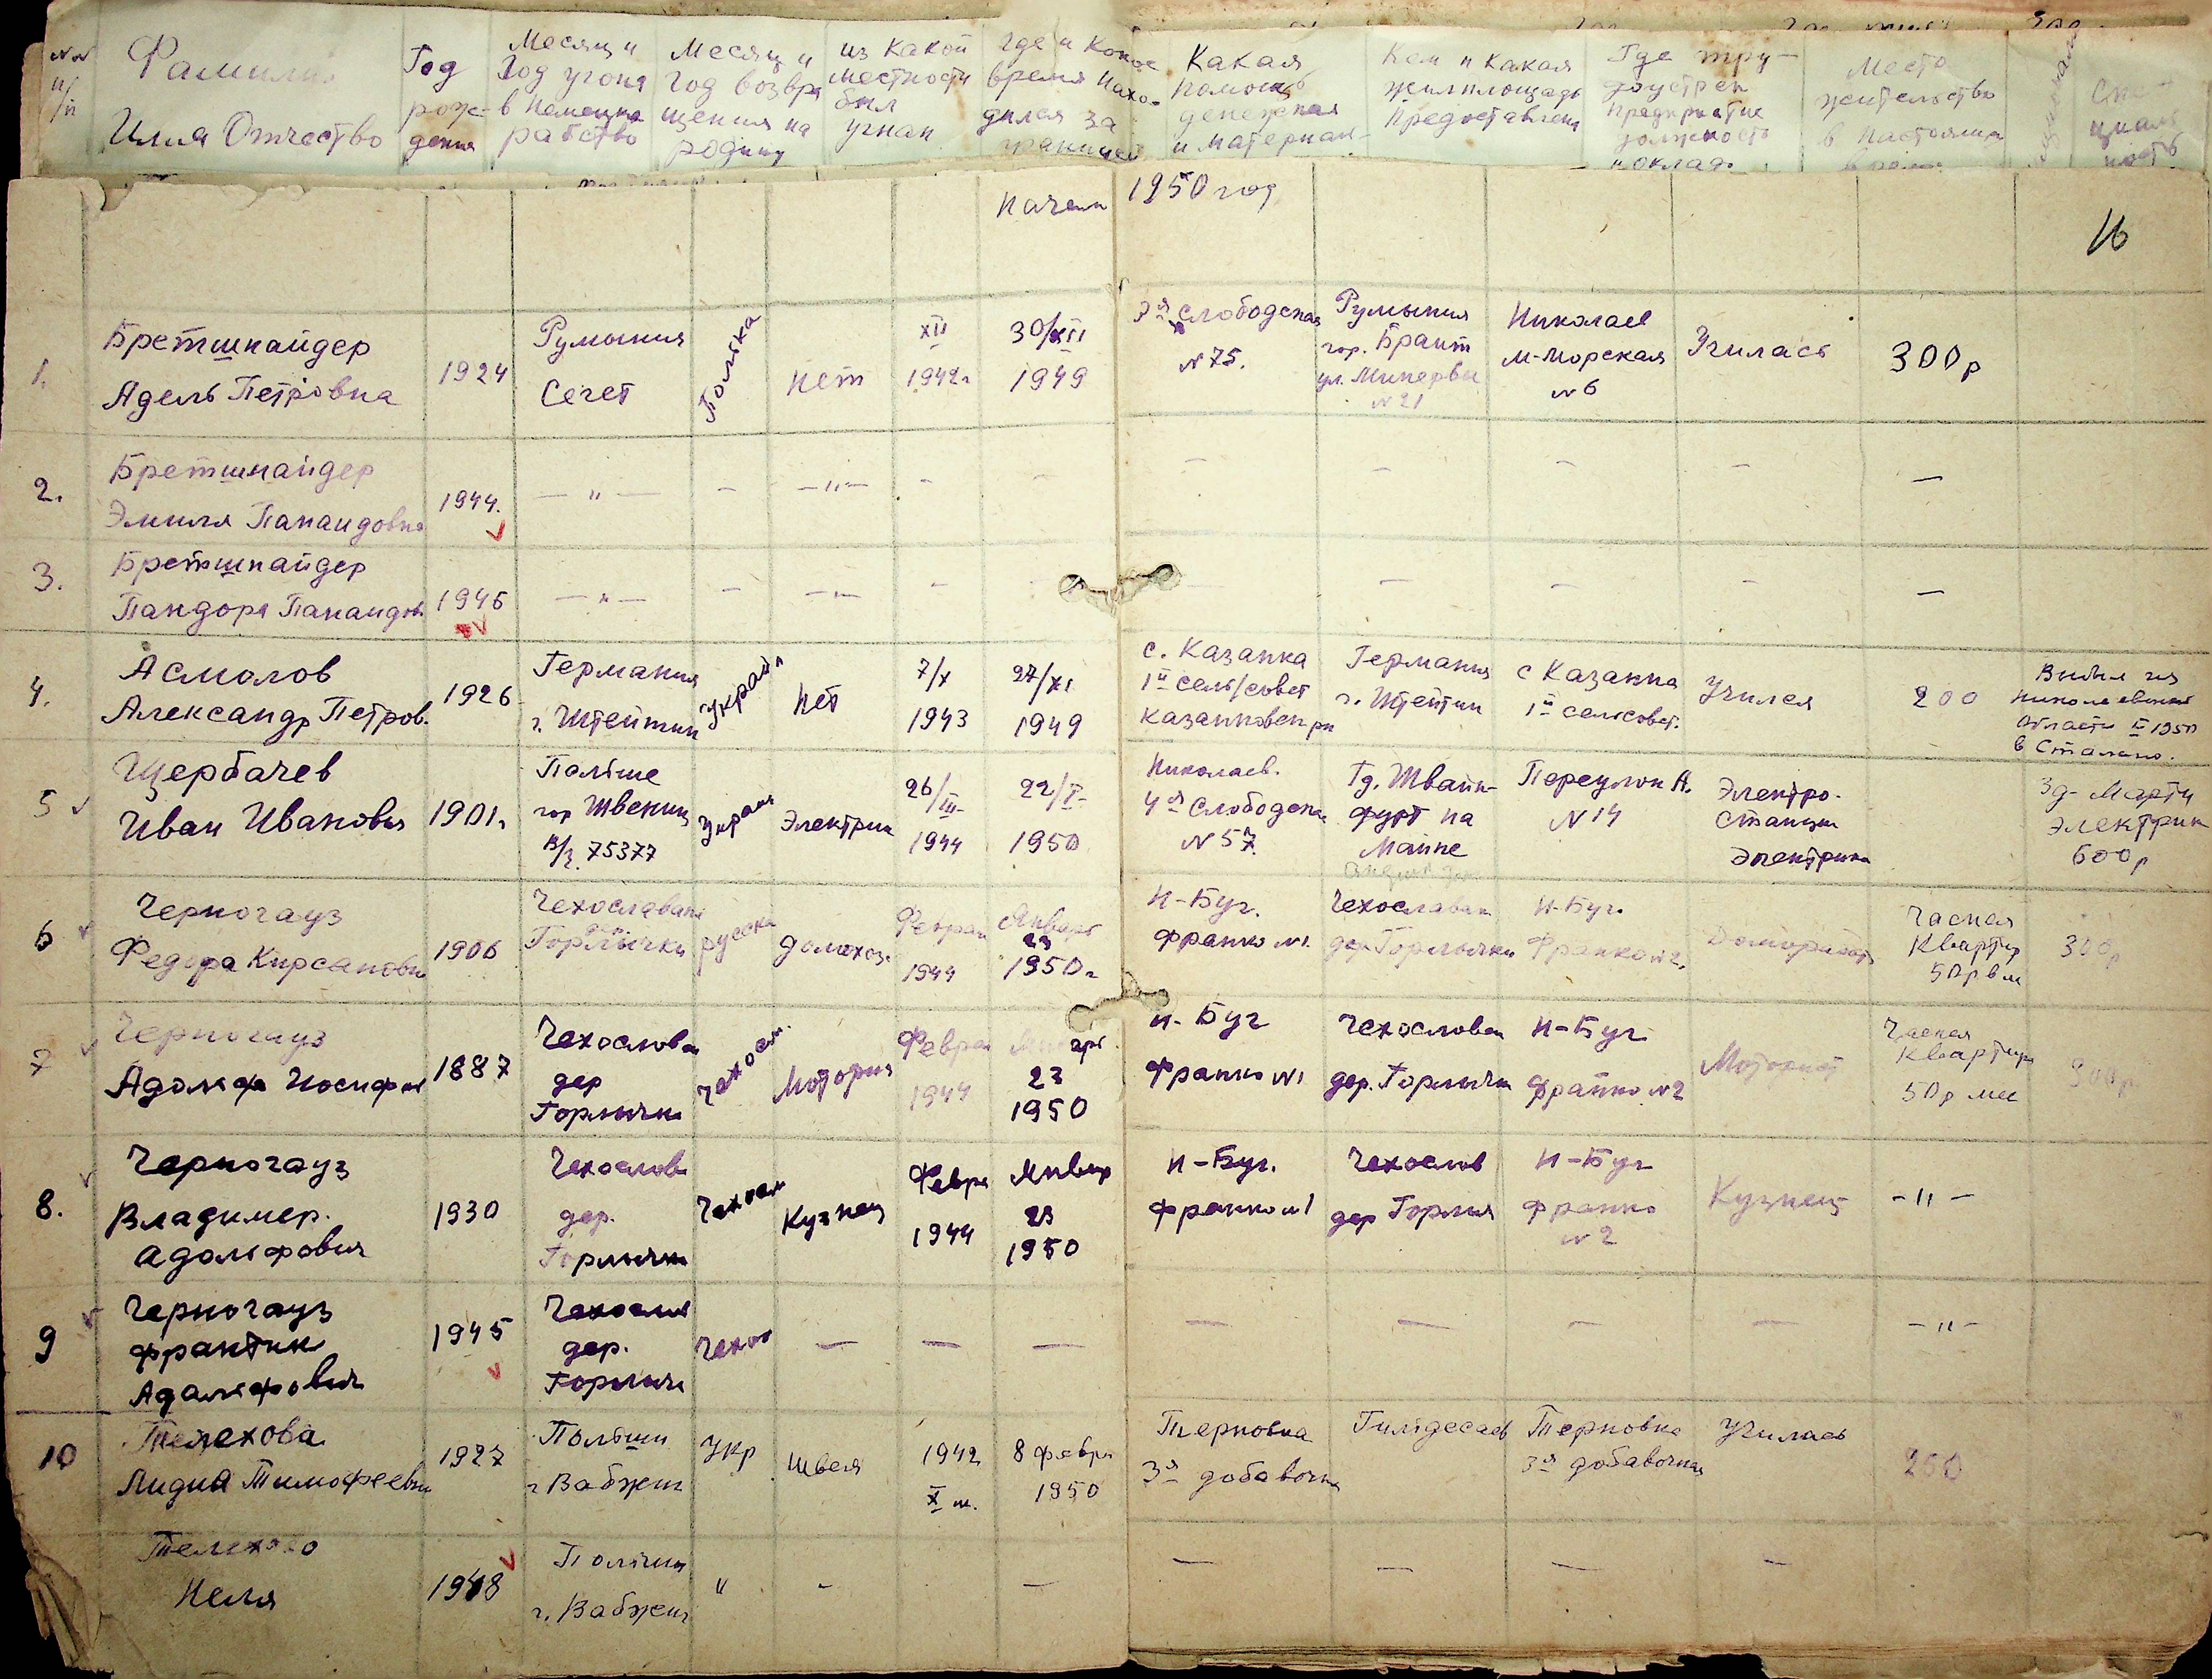 №№ п/п
Фамилия
Имя Отчество
Год рождения
Месяц и
Год угона
в Немецкое
рабство
Месяц и
год возвра
щения на
родину
из какой
местности
был
угнан
где и какое
время нахо-
дился за
границей
Какая
помощь
денежная
и материал-
Кем и какая
жилплощадь
предоставлена
Где тру-
доустроен
предприятие
должность
и оклад
Место
жительства
в настоящее
время
Спе-
циаль
ность
Начали 1950 год
16
1.
Бретшнайдер
Адель Петровна
1924
Румыния
Сегет
Полька
нет
XII
1942г
30/XII
1949
Слободская
№ 75.
Румыния
гор. Браит
ул. Минервы
№ 21
Николаев
М-Морская
№ 6
Училась
300р
2.
Бретшнайдер
Эмиля Папаидовна
1944.
— " —
-
— " —
-
-
—
—
—
—
—
3.
Бретшнайдер
Пандора Папаидов
1946
— " —
-
— " —
-
—
—
—
—
4.
Асмолов
Александр Петров.
1926
Германия
г. Штейтин
Украин
Нет
7/X
1943
27/XI
1949
с. Казанка
1й сель/совет
Казанковск рн
Германия
г. Штейтин
с Казанка
1й сельсовет.
Учился
200
Выбыл из
Николаевской
области
1950
в Сталино.
5
Щербачев
Иван Иванович
1901г
Польше
гор Швениц
75377
Украин
Электрик
26/III
1944
22/I
1950
Николаев.
4я Слободская
№ 57.
Гд. Швайн-
фурт на
Майне
Переулок А.
№ 14
Электро-
станция
Электрик
Зд- Марти
Электрик
600р
6
Черногауз
Федора Кирсановн
1906
Чехославаки
Горлички
русска
домохоз.
Феврал
1944
Январь
23
1950г
Н-Буг.
Франко №1
Чехославак
дер. Горлычки
Н-Буг.
Франко №2.
Часная
Квартир
50р в м
300р
7
Черногауз
Адольф Иосифов
1887
Чехослова
дер
Горлычки
Чехосл.
Моторис
Феврал
1944
23
1950
Н-Буг
Франко №1
Чехословак
дер. Горлычк
Н-Буг
Франко №2
Моторист
Часная
Квартира
50р мес
300р
8.
Черногауз
Владимер.
Адольфович
1930
Чехослов
дер.
Горлычки
Чехосл
Кузнец
Февра
1944
Январ
23
1950
Н-Буг.
Франко №1
Чехослов
дер Горлич
Н-Буг
Франко
№ 2
Кузнец
- " -
9
Черногауз
Франтик
Адольфович
1945
дер.
Горличи
Чехос
—
—
—
—
—
—
—
- " -
10
Телехова
Лидия Тимофеевн
1927
Польши
г Вабжен
Укр
швея
1942
X м.
8 февра
1950
Терновка
3я добавочн
Гильдесаев
Терновка
3я добавочная
Училась
250
Телехова
Неля
1948
Польши
г. Вабжен
"
-
—
—
—
—
—